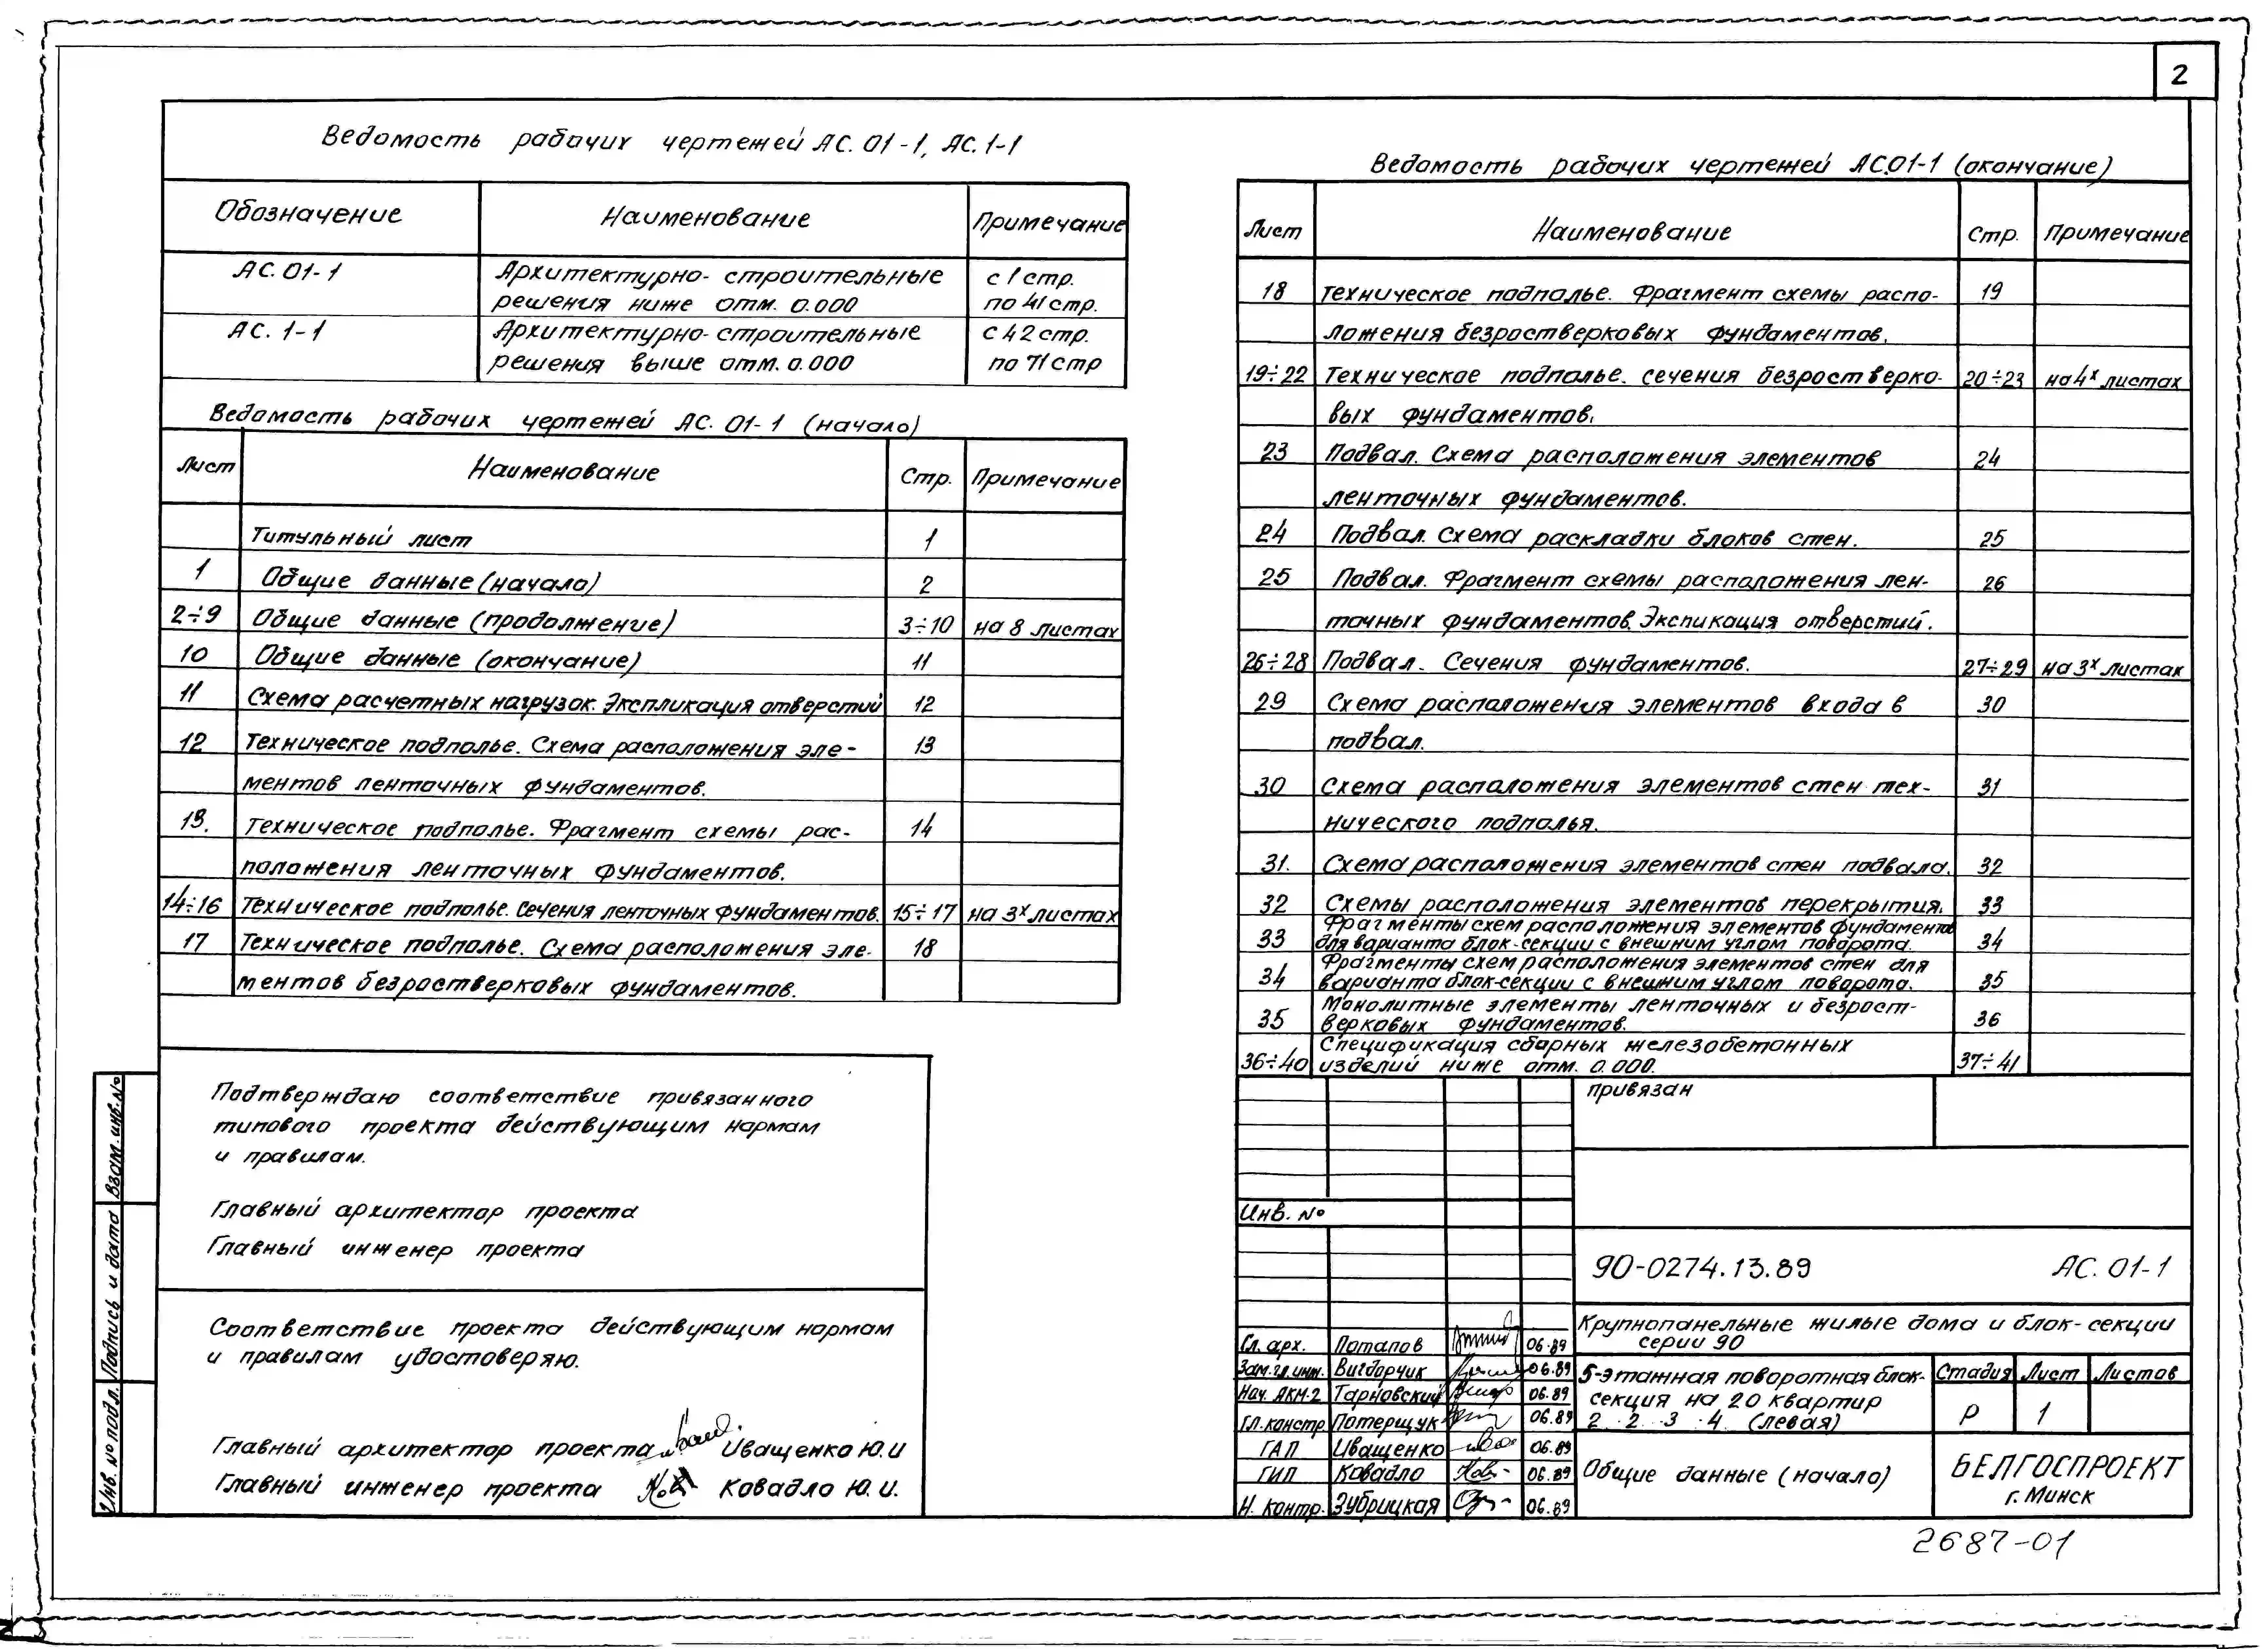 2
Ведомость рабочих чертежей АС. 01-1, АС. 1-1
Обозначение Наименование Примечание
АС. 01-1 Архитектурно- строительные с 1 стр.
решения ниже отм. 0.000 по 41 стр.
АС. 1-1 Архитектурно- строительные с 42 стр.
решения выше отм. 0.000 по 71 стр
Ведомость рабочих чертежей АС. 01-1 (начало)
Лист Наименование Стр. Примечание
Титульный лист 1
1 Общие данные (начало) 2
2÷9 Общие данные (продолжение) 3÷10 на 8 листах
10 Общие данные (окончание) 11
11 Схема расчетных нагрузок. Экспликация отверстий 12
12 Техническое подполье. Схема расположения эле- 13
ментов ленточных фундаментов.
13. Техническое подполье. Фрагмент схемы рас- 14
положения ленточных фундаментов.
14÷16 Техническое подполье. Сечения ленточных фундаментов. 15÷17 на 3х листах
17 Техническое подполье. Схема расположения эле- 18
ментов безростверковых фундаментов.
Подтверждаю соответствие привязанного
типового проекта действующим нормам
и правилам.
Главный архитектор проекта
Главный инженер проекта
Соответствие проекта действующим нормам
и правилам удостоверяю.
Главный архитектор проекта Иващенко Ю.И
Главный инженер проекта Ковадло Ю.И.
Взам. инв. №
Подпись и дата
Инв. № подл.
Ведомость рабочих чертежей АС.01-1 (окончание)
Лист Наименование Стр. Примечание
18 Техническое подполье. Фрагмент схемы распо- 19
ложения безростверковых фундаментов.
19÷22 Техническое подполье. Сечения безростверко- 20÷23 на 4х листах
вых фундаментов.
23 Подвал. Схема расположения элементов 24
ленточных фундаментов.
24 Подвал. Схема раскладки блоков стен. 25
25 Подвал. Фрагмент схемы расположения лен- 26
точных фундаментов. Экспикация отверстий.
26÷28 Подвал. Сечения фундаментов. 27÷29 на 3х листах
29 Схема расположения элементов входа в 30
подвал.
30 Схема расположения элементов стен тех- 31
нического подполья.
31. Схема расположения элементов стен подвала. 32
32 Схемы расположения элементов перекрытия. 33
33 Фрагменты схем расположения элементов фундаментов 34
для варианта блок-секции с внешним углом поворота.
34 Фрагменты схем расположения элементов стен для 35
варианта блок-секции с внешним углом поворота.
35 Монолитные элементы ленточных и безрост- 36
верковых фундаментов.
36÷40 Спецификация сборных железобетонных 37÷41
изделий ниже отм. 0.000.
привязан
Инв. №
90-0274.13.89 АС. 01-1
Крупнопанельные жилые дома и блок-секции
серии 90
Гл. арх. Потапов 06.89
Зам. гл. инж. Вигдорчик 06.89
Нач. АКМ-2 Тарновский 06.89
Гл. констр. Потерщук 06.89
ГАП Иващенко 06.89
ГИП Ковадло 06.89
Н. контр. Зубрицкая 06.89
5-этажная поворотная блок-
секция на 20 квартир
2. 2. 3. 4. (левая)
Стадия Лист Листов
Р 1
Общие данные (начало)
БЕЛГОСПРОЕКТ
г. Минск
2687-01